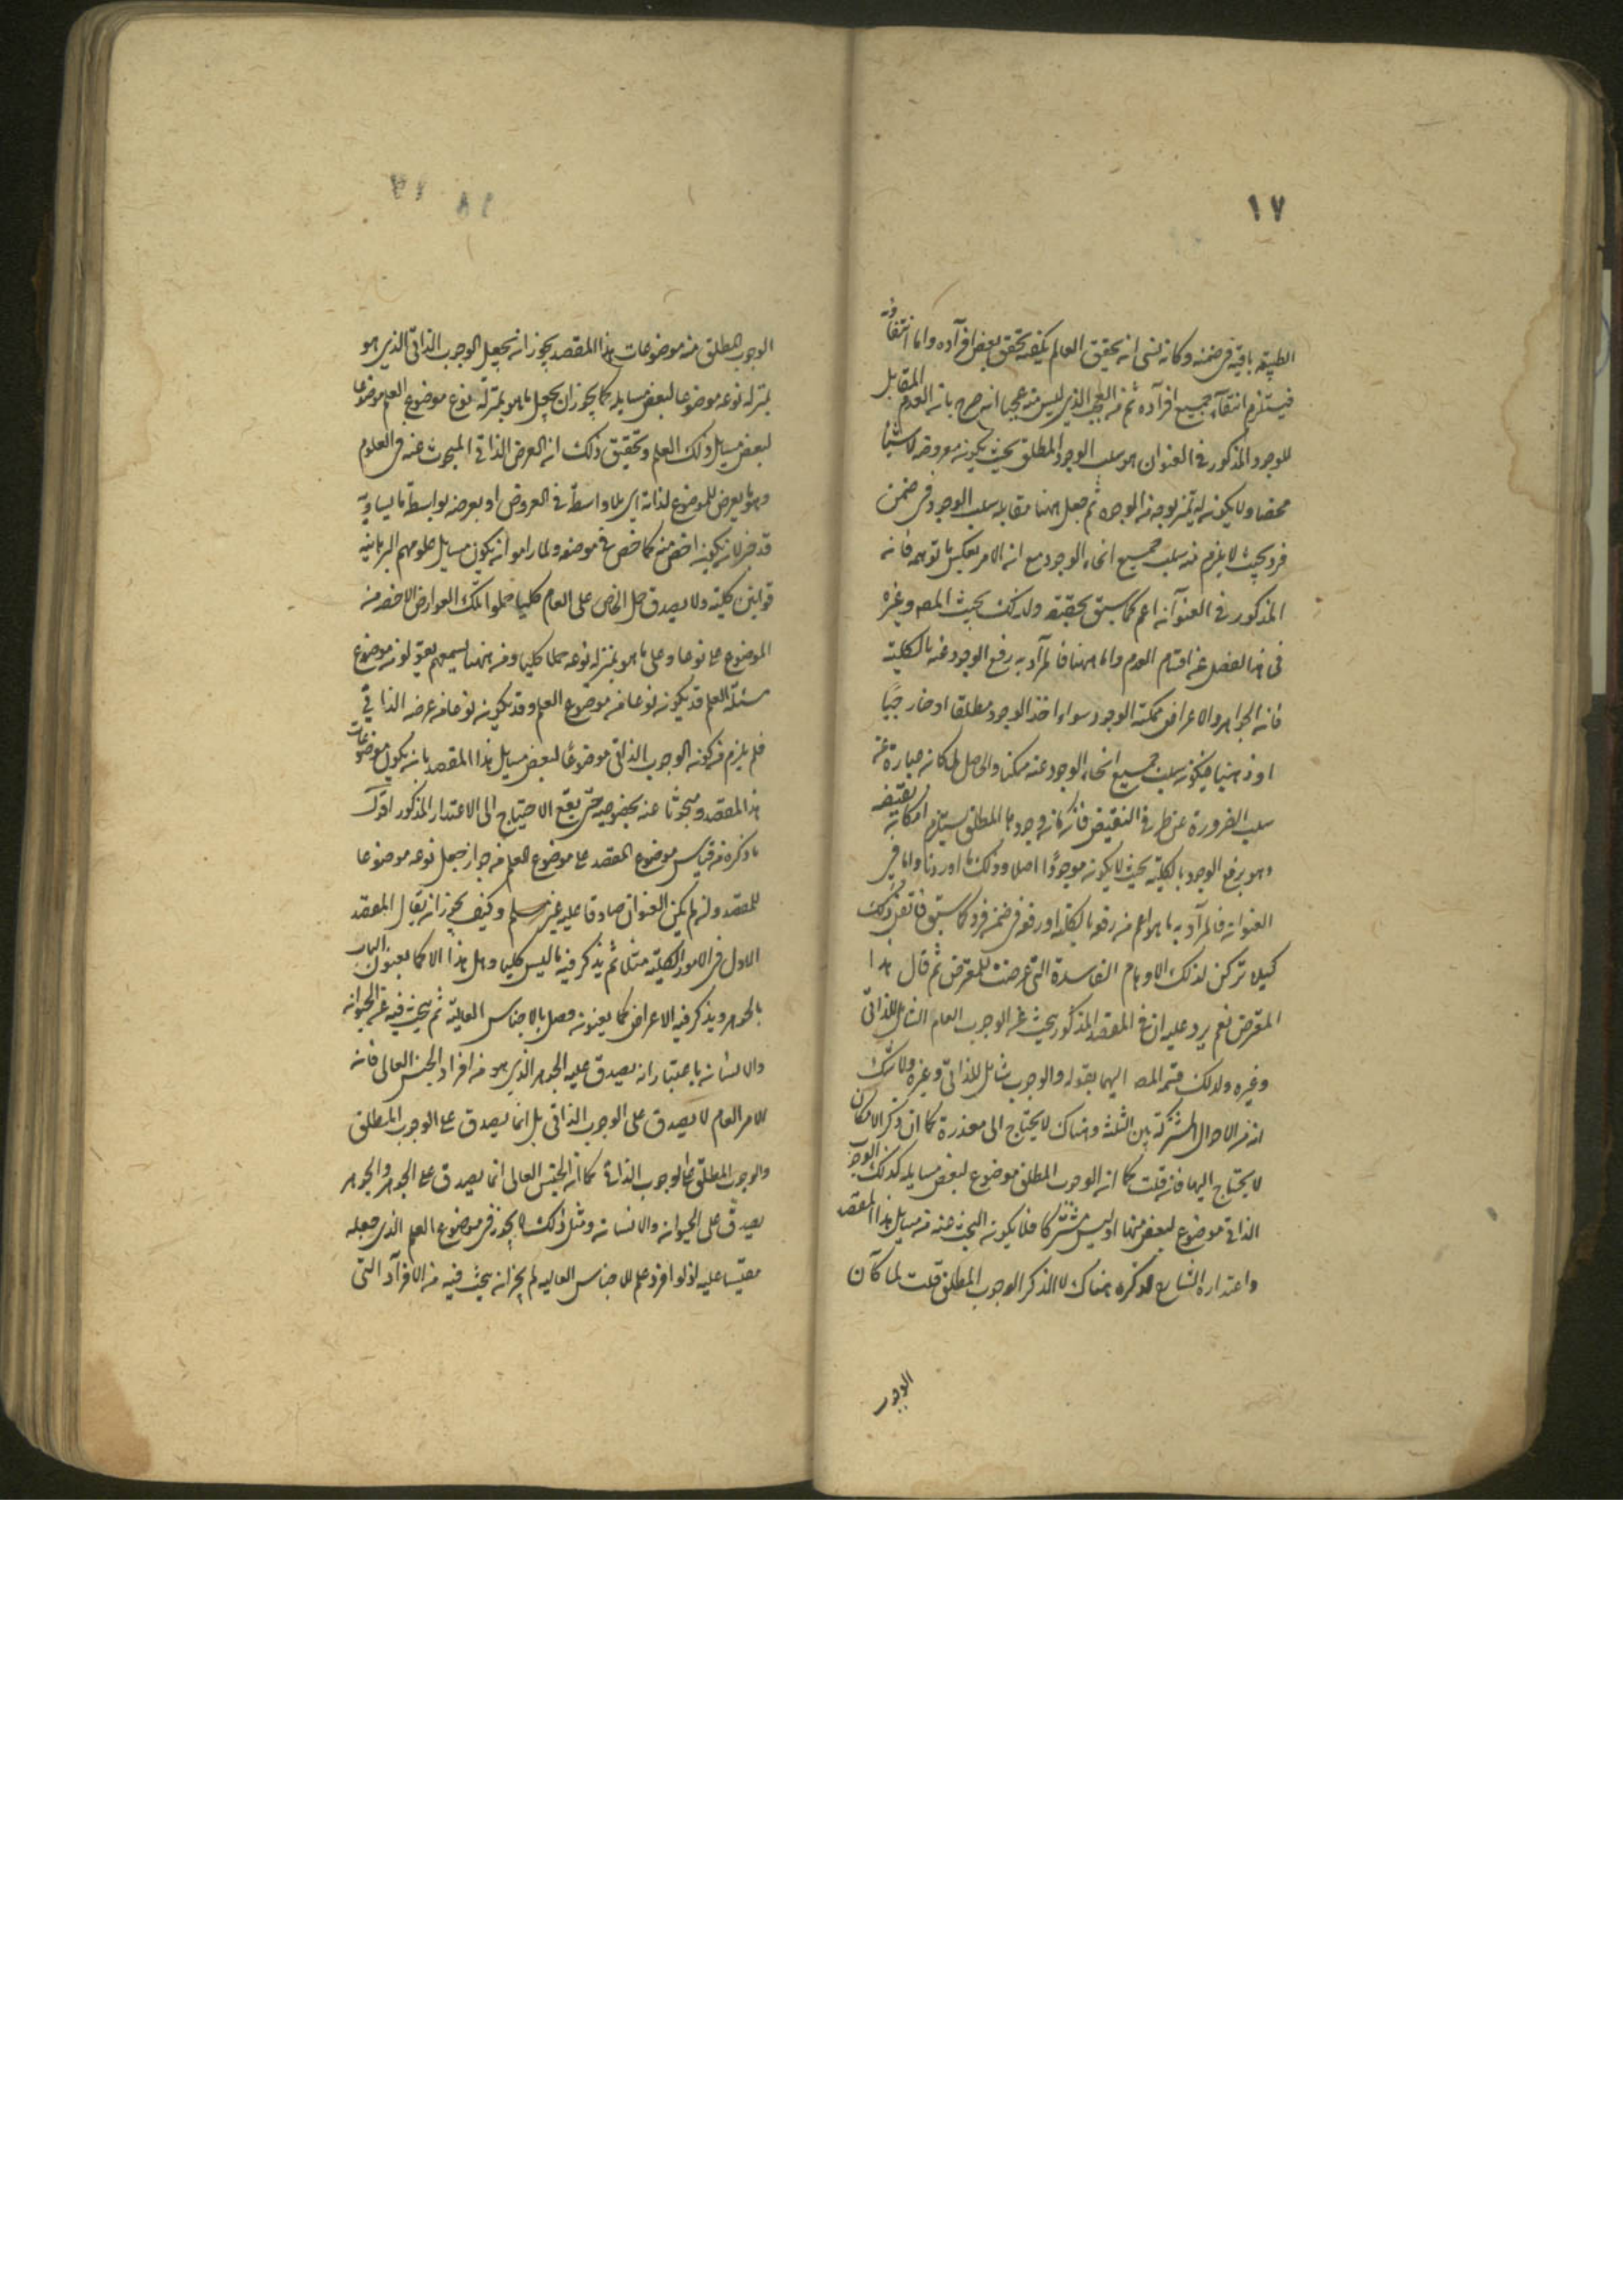 ١٧
الطبيعة باقية في ضمنه وكانه نسى ان تحقيق العالم يكفيه تحقق بعض افراده واما انتفاؤه
فيستلزم انتفاء جميع افراده ثم من العجب الذي ليس منه عجبا انه صرح بان العدم المقابل
للوجود المذكور في العنوان هو سلب الوجود المطلق بحيث يكون معروضه لا شيئا
محضا ولا يكون له تميز بوجه من الوجوه ثم جعل ههنا مقابله سلب الوجود في ضمن
فرد بحيث لا يلزم منه سلب جميع انحاء الوجود مع ان الامر بعكس ما توهمه فانه
المذكور في العنوان اعم كما سبق تحقيقه ولذلك بحيث المص وغيره
في هذا الفصل عن اقسام العدم واما ههنا فالمراد به رفع الوجود عنه بالكلية
فان الجواهر والاعراض ممكنة الوجود سواء اخذ الوجود مطلقا او خارجيا
او ذهنيا فيكون سلب جميع انحاء الوجود عنه ممكنا والحاصل الامكان عبارة عن
سلب الضرورة عن طرفي النقيض فامكان وجودها المطلق يستلزم امكان نقيضه
وهو رفع الوجود بالكلية بحيث لا يكون موجودا اصلا وذلك ما اوردنا واما في
العنوان فالمراد به ما هو اعم من رفعه بالكلية او رفعه في ضمن فرد كما سبق فاتقن ذلك
كيلا تركن لذلك الاوهام الفاسدة التي عرضت للمعترض ثم قال هذا
المعترض نعم يرد عليه ان في المقصد المذكور يبحث عن الوجوب العام الشامل للذاتي
وغيره ولذلك قسم المص اليهما بقوله والوجوب شامل للذاتي وغيره ولا شك
انه من الاحوال المشتركة بين الثلثة وهناك لا يحتاج الى معذرة كما ان ذكر الامكان
لا يحتاج اليها فان قلت كما ان الوجوب المطلق موضوع لبعض مسايله كذلك الوجوب
الذاتي موضوع لبعض منها اذ ليس مشتركا فلا يكون البحث عنه من مسايل هذا المقصد
واعتذار الشارح لذكره هناك لا لذكر الوجوب المطلق قلت لما كان
الوجوب
الوجوب المطلق من موضوعات هذا المقصد يجوز ان يجعل الوجوب الذاتي الذي هو
بمنزلة نوعه موضوعا لبعض مسايله كما يجوز ان يجعل ما هو بمنزلة نوع موضوع العلم موضوعا
لبعض مسايل ذلك العلم وتحقيق ذلك ان العرض الذاتي المبحوث عنه في العلوم
وهو ما يعرض للموضوع لذاته اي بلا واسطة في العروض او يعرضه بواسطة ما يساويه
قد يجوز ان يكون اخص منه كما خص في موضعه ولما راموا ان يكون مسايل علومهم البرهانية
قوانين كلية ولا يصدق حمل الخاص على العام كليا حملوا تلك العوارض الاخص من
الموضوع على نوعها وعلى ما هو بمنزلة نوعه حملا كليا ومن ههنا تسمعهم يقولون موضوع
مسئلة العلم قد يكون نوعا من موضوع العلم وقد يكون نوعا من عرضه الذاتي
فلم يلزم من كون الوجوب الذاتي موضوعا لبعض مسايل هذا المقصد بان يكون موضوعات
هذا المقصد ومبحوثا عنه بخصوصه حتى يقع الاحتياج الى الاعتذار المذكور اقول
ما ذكره من قياس موضوع المقصد على موضوع العلم في جواز جعل نوعه موضوعا
للمقصد وان لم يكن العنوان صادقا عليه غير مسلم وكيف يجوز ان يقال المقصد
الاول في الامور الكلية مثلا ثم يذكر فيه ما ليس كليا وهل هذا الا كما يعنون الباب
بالجوهر ويذكر فيه الاعراض كما يعنون فصل بالاجناس العالية ثم يبحث فيه عن الحيوان
والانسان باعتبار انه يصدق عليه الجوهر الذي هو من افراد الجنس العالي فانه
الامر العام لا يصدق على الوجوب الذاتي بل انما يصدق على الوجوب المطلق
والوجوب المطلق على الوجوب الذاتي كما ان الجنس العالي انما يصدق على الجوهر والجوهر
يصدق على الحيوان والانسان ومثل ذلك لا يجوز في موضوع العلم الذي جعله
مقيسا عليه اذ لو افرد علم للاجناس العالية لم يجز ان يبحث فيه من الافراد التي